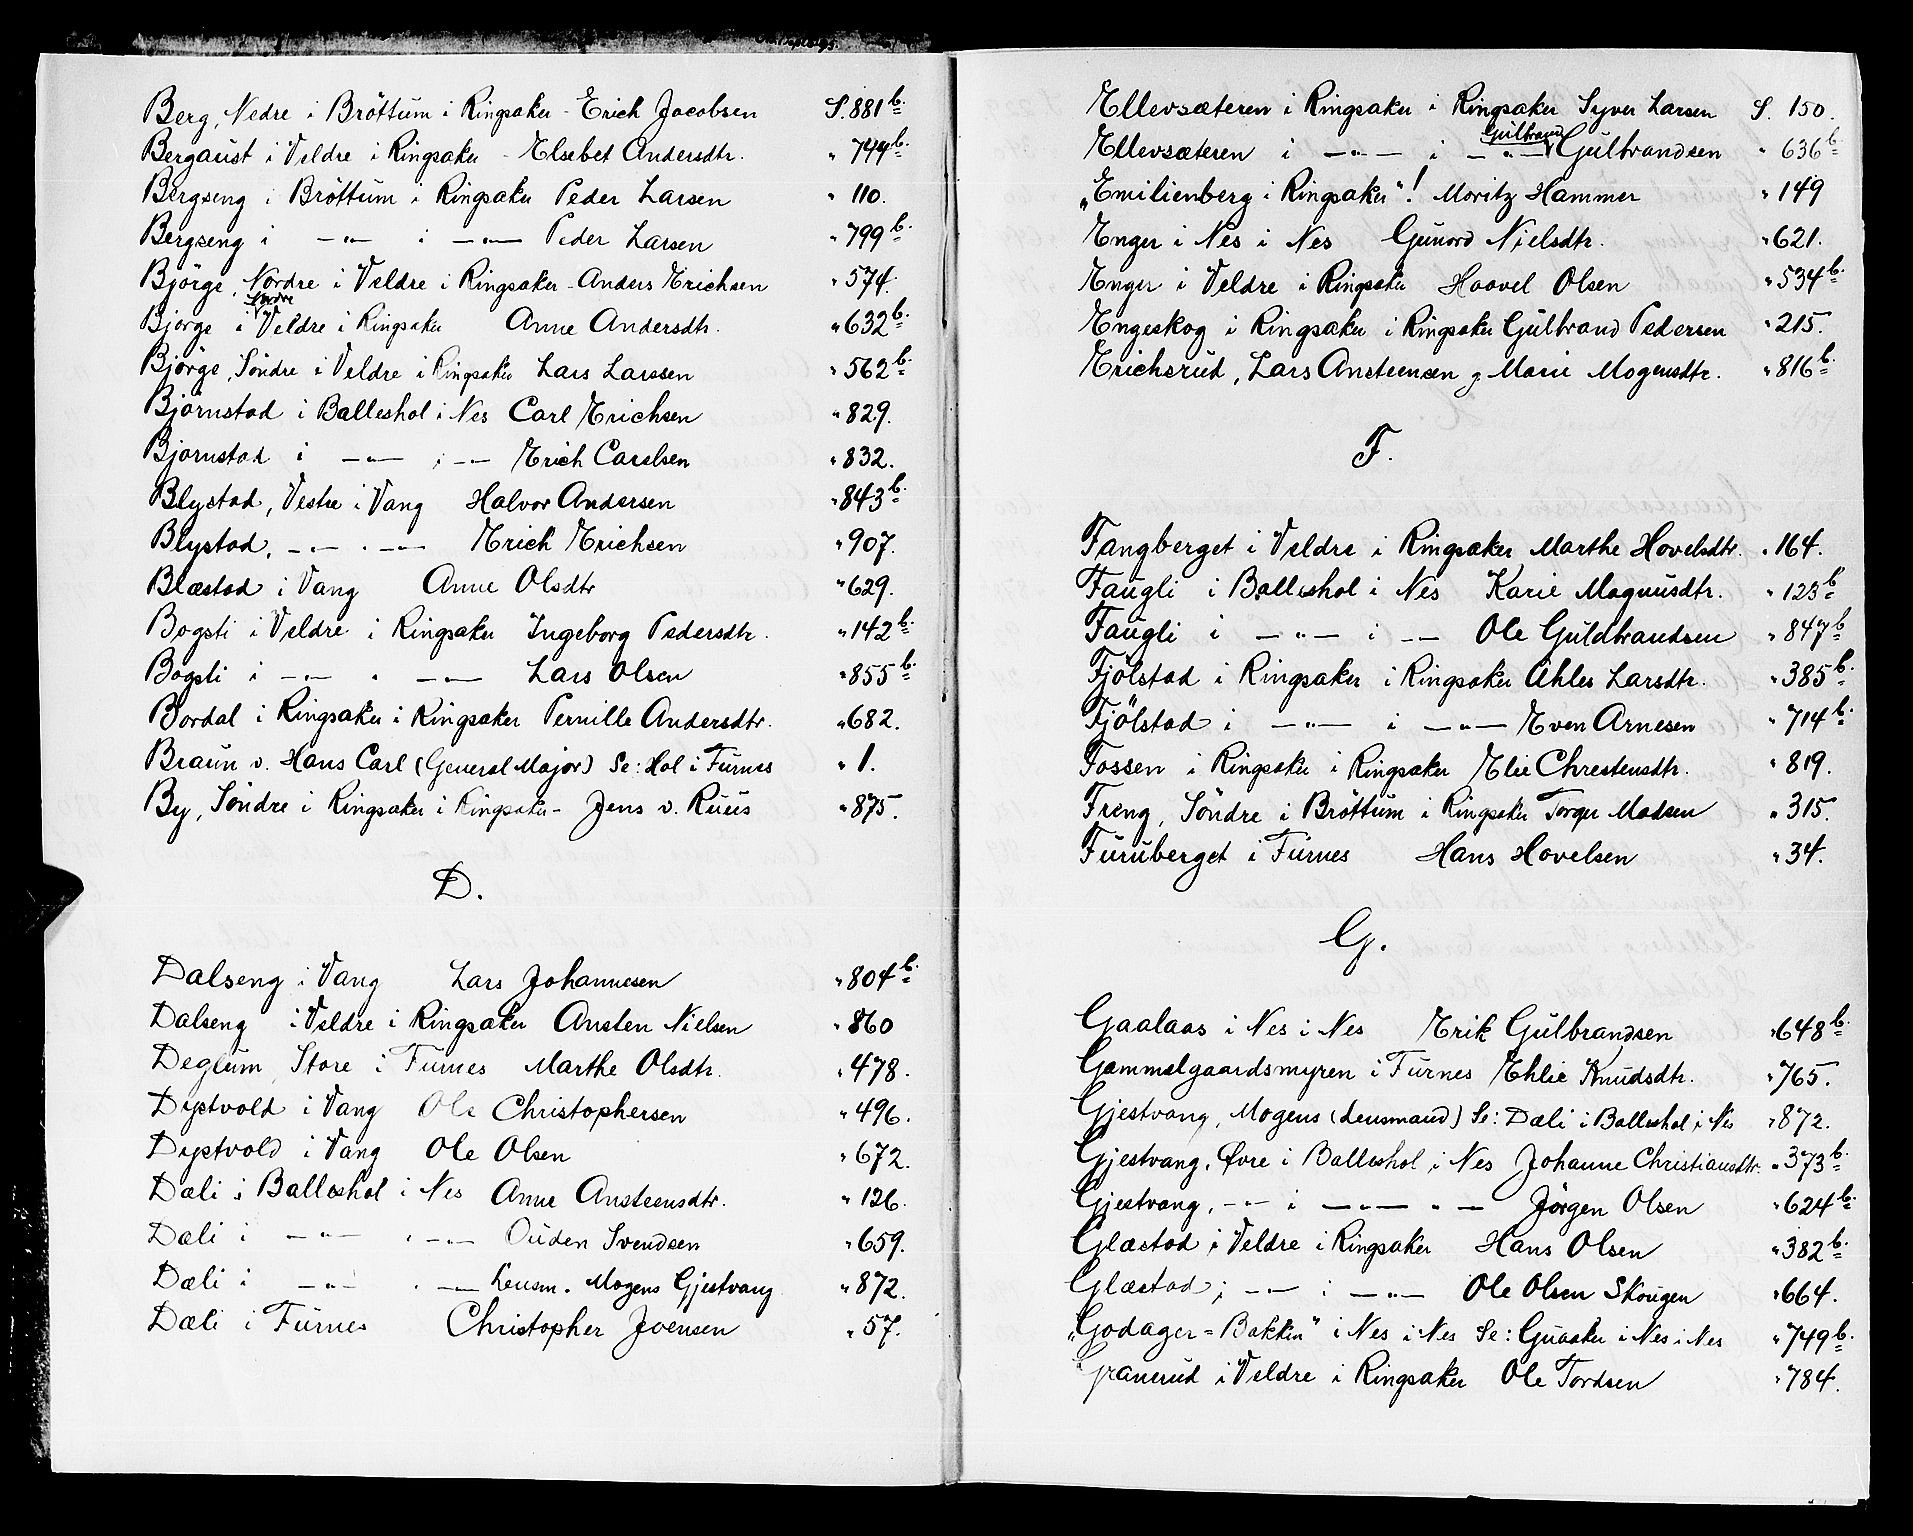 Berg, Nedre i Bröttum i Ringsaker - Erich Jacobsen S. 881 b.
Bergaust i Veldre i Ringsaker - Elsebet Andersdtr. " 744 b.
Bergseng i Bröttum i Ringsaker Peder Larsen " 110.
Bergseng i —"— i —"— Peder Larsen " 799 b.
Björge, Nordre i Veldre i Ringsaker - Anders Erichsen " 574.
Søndre
Björge i Veldre i Ringsaker Anne Andersdtr. " 632 b.
Björge, Söndre i Veldre i Ringsaker Lars Larssen " 562 b.
Björnstad i Balleshol i Nes Carl Erichsen " 829.
Björnstad i —"— i —"— Erich Carelsen " 832.
Blystad, Vestre i Vang Halvor Andersen " 843 b.
Blystad, —"— " —"— Erich Erichsen " 907.
Blæstad i Vang Anne Olsdtr " 629.
Bogsti i Veldre i Ringsaker Ingeborg Pedersdtr. " 142 b.
Bogsti i —"— " —"— Lars Olsen " 855 b.
Bordal i Ringsaker i Ringsaker Pernille Andersdtr. " 682.
Braun v. Hans Carl (General Major) Se: Hol i Furnes " 1.
By, Söndre i Ringsaker i Ringsaker - Jens v. Ruus " 875.
D.
Dalseng i Vang Lars Johannesen " 804 b.
Dalseng i Veldre i Ringsaker Ansten Nielsen " 860
Deglum, Store i Furnes Marthe Olsdtr. " 478.
Dystvold i Vang Ole Christophersen " 496.
Dystvold i Vang Ole Olsen " 672.
Dæli i Balleshol i Nes Anne Ansteensdtr. " 126.
Dæli i —"— " —"— Ouden Svendsen " 659.
Dæli i —"— " —"— Lensm. Mogens Gjestvang " 872.
Dæli i Furnes Christopher Joensen " 57.
Ellevsæteren i Ringsaker i Ringsaker Syver Larsen S. 150.
Gulbrand
Ellevsæteren i —"— i —"— Gulbrandsen " 636 b.
„Emilienberg i Ringsaker"! Moritz Hammer " 149
Enger i Nes i Nes Gunord Nielsdtr. " 621.
Enger i Veldre i Ringsaker Haavel Olsen " 534 b.
Engeskog i Ringsaker i Ringsaker Gulbrand Pedersen " 215.
Erichsrud, Lars Ansteensen og Marie Mogensdtr. " 816 b.
F.
Fangberget i Veldre i Ringsaker Marthe Hovelsdtr. " 164.
Faugli i Balleshol i Nes Karie Magnusdtr. " 123 b
Faugli i —"— i —"— Ole Guldbrandsen " 847 b
Fjölstad i Ringsaker i Ringsaker Ahles Larsdtr. " 385 b.
Fjölstad i —"— i —"— Even Arnesen " 714 b.
Fossen i Ringsaker i Ringsaker Elie Chrestensdtr. " 819.
Freng, Söndre i Bröttum i Ringsaker Torger Madsen " 315.
Furuberget i Furnes Hans Hovelsen " 34.
G.
Gaalaas i Nes i Nes Erik Gulbrandsen " 648 b.
Gammelgaardsmyren i Furnes Ehlie Knudsdtr. " 765.
Gjestvang, Mogens (Lensmand) Se: Dæli i Balleshol i Nes " 872.
Gjestvang, Øvre i Balleshol i Nes Johanne Christiansdtr. " 373 b.
Gjestvang, —"— i —"— " — Jörgen Olsen " 624 b.
Glæstad i Veldre i Ringsaker Hans Olsen " 382 b.
Glæstad i —"— i —"— Ole Olsen Skougen " 664.
„Godager=Bakken" i Nes i Nes Se: Guaaker i Nes i Nes " 749 b.
Granerud i Veldre i Ringsaker Ole Tordsen " 784.